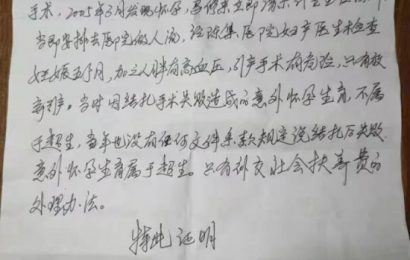 手术，2005年3月发现怀孕，
当即安排去医院做人流，经陈集医院妇产医生检查
妊娠五个月，加之人胖有高血压，引产手术有危险，只有放
弃引产。当时因结扎手术失败造成的意外怀孕生育，不属
于超生，当年也没有任何文件条款规定说结扎后失败
意外怀孕生育属于超生。只有补交社会抚养费的
处理办法。
特此证明